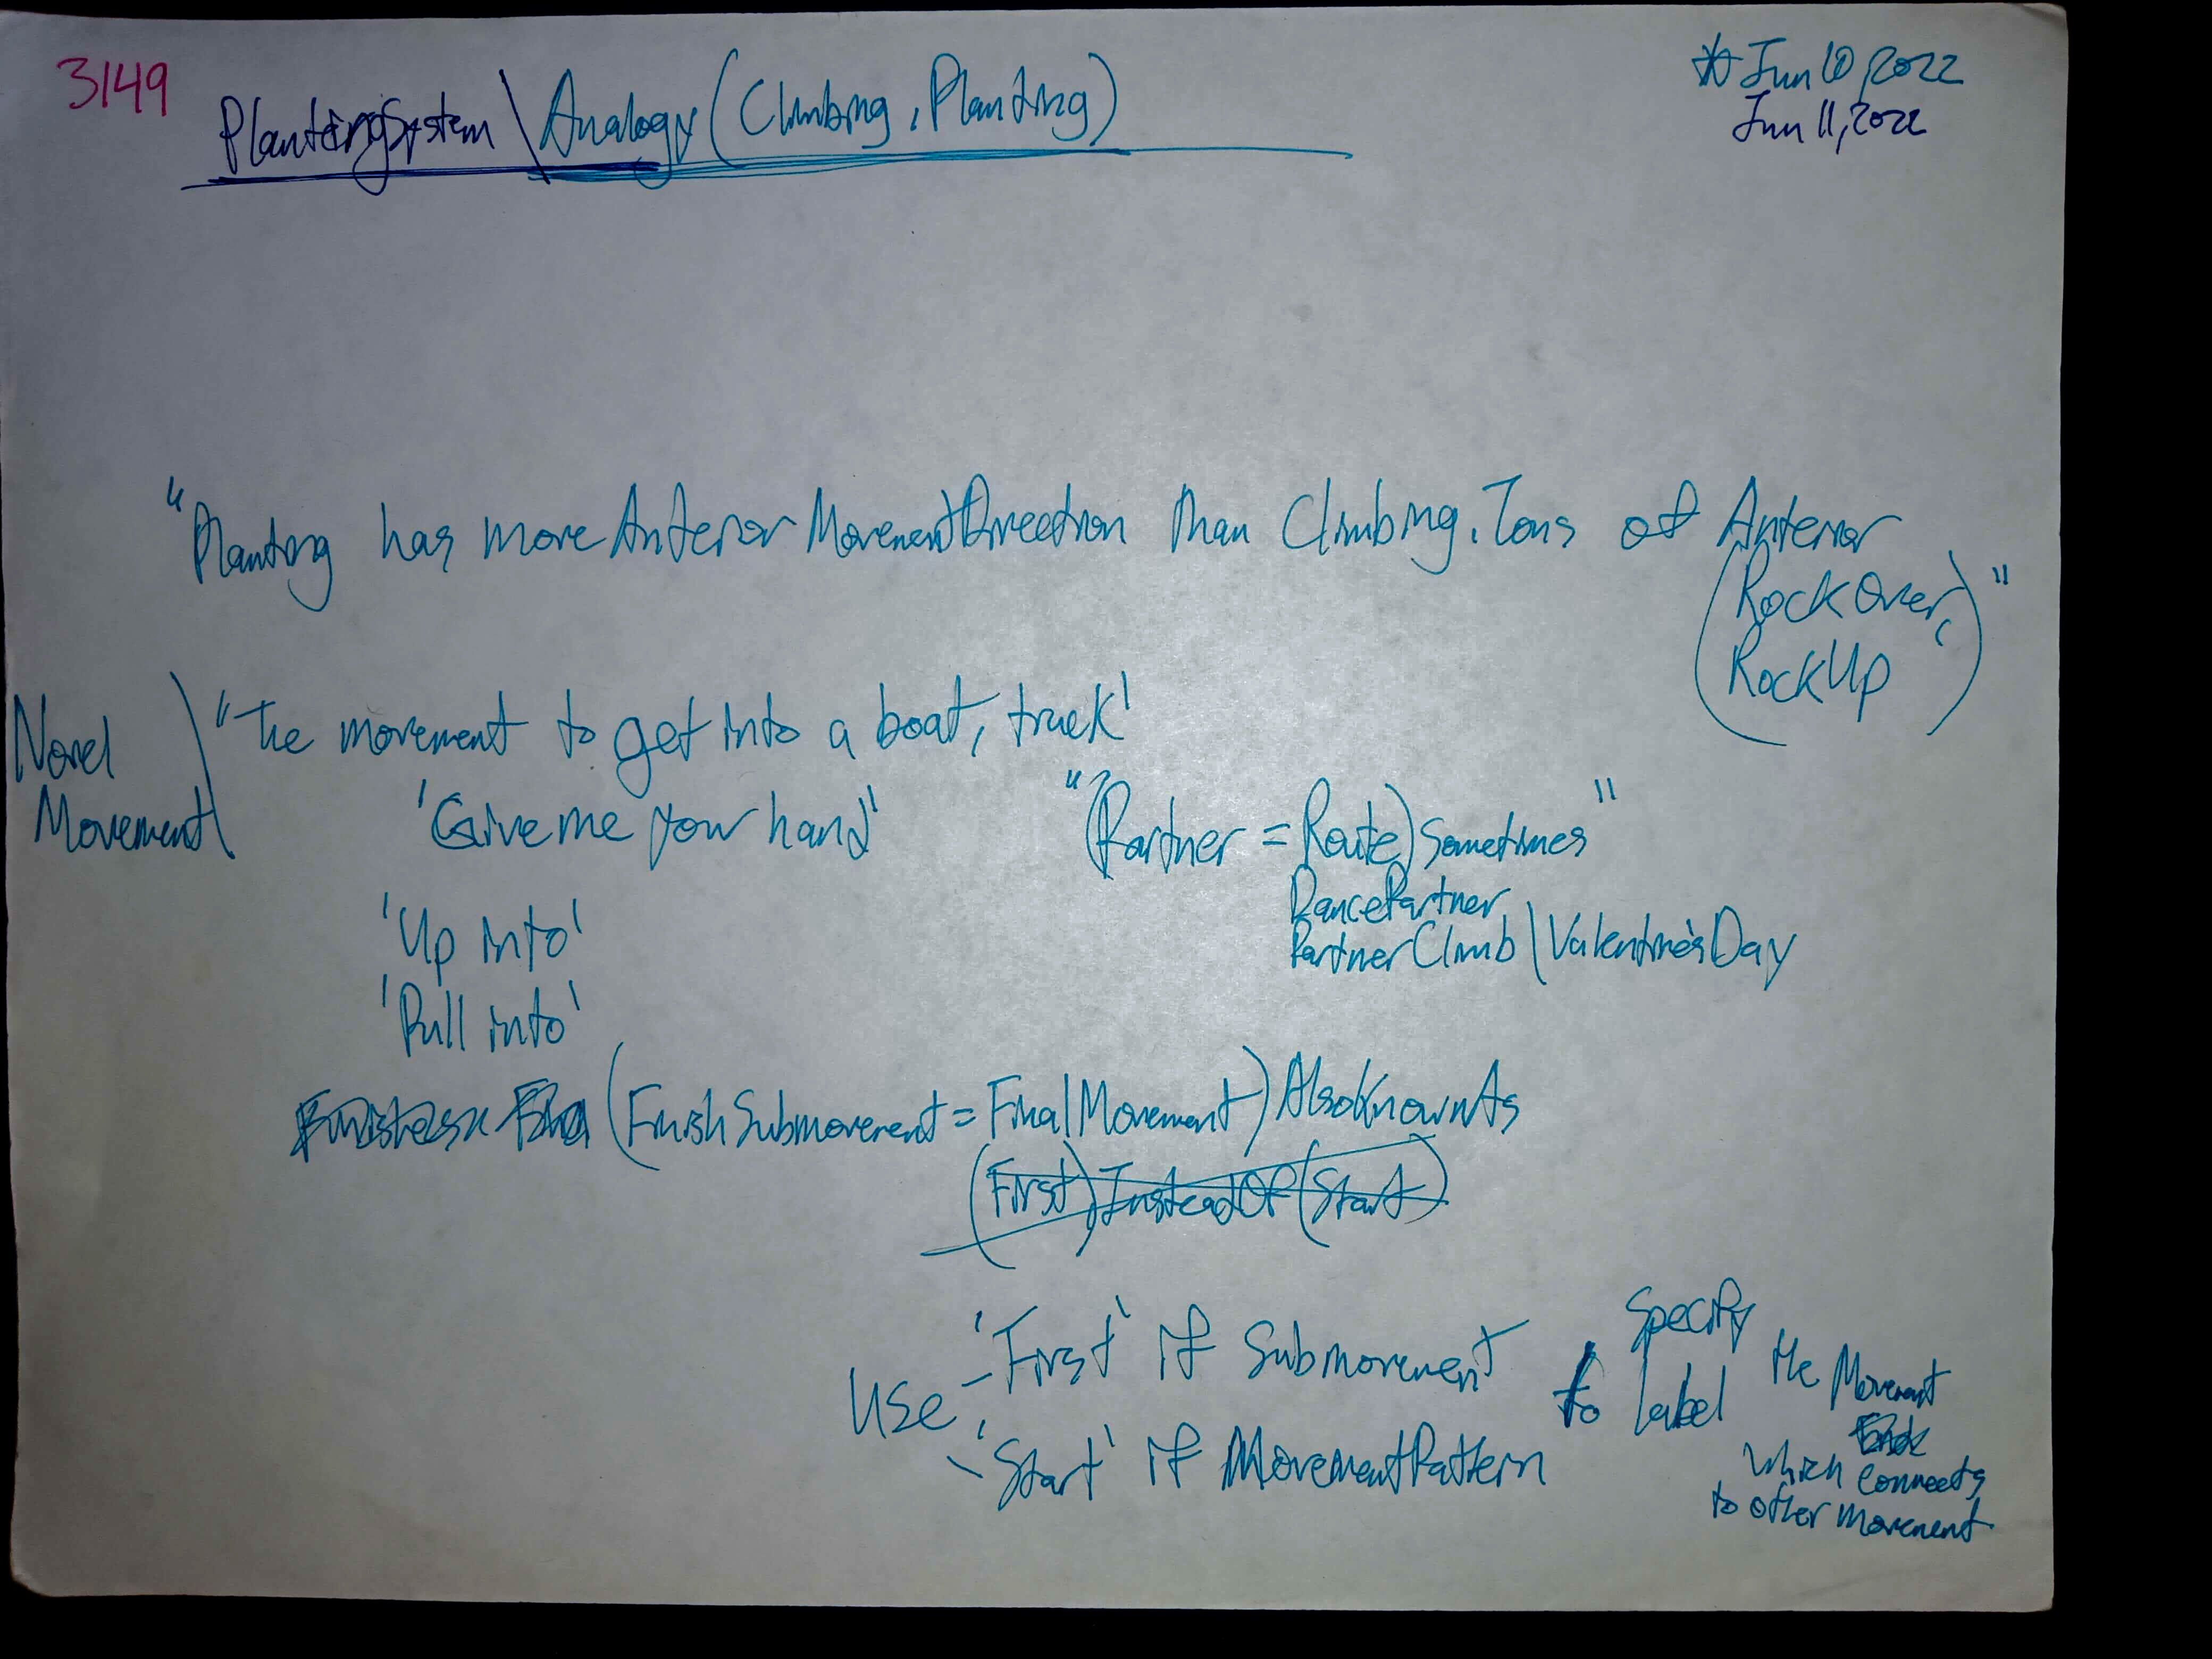 3149
PlantingSystem\Analogy(Climbing, Planting)
Jun 10, 2022
Jun 11, 2022
"Planting has more Anterior MovementDirection than Climbing. Tons of Anterior
(RockOver,
RockUp)"
Novel
Movement\
"The movement to get into a boat, truck'
'Give me your hand"
"(Partner = Route)Sometimes"
DancePartner
PartnerClimb\Valentine'sDay
'Up into'
'Pull into'
(FinishSubmovement = FinalMovement)AlsoKnownAs
(First)InsteadOf(Start)
Use
- 'First' if Submovement
- 'Start' if MovementPattern
to
Specify
label
the Movement
End
which connects
to other movement